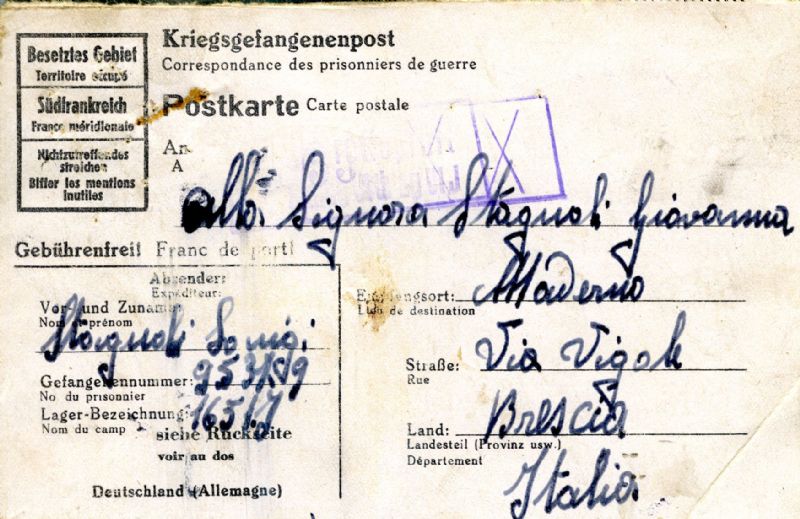 Besetztes Gebiet
Territoire occupé
Südfrankreich
France méridionale
Nichtzutreffendes
streichen
Biffer les mentions
inutiles
Kriegsgefangenenpost
Correspondance des prisonniers de guerre
Postkarte Carte postale
An
A
Alla Signora Stagnoli Giovanna
Gebührenfrei! Franc de port!
Absender:
Expéditeur:
Vor- und Zuname:
Nom et prénom
Stagnoli
Gefangenennummer:
No du prisonnier
Lager-Bezeichnung:
Nom du camp
siehe Rückseite
voir au dos
Deutschland (Allemagne)
Empfangsort: Maderno
Lieu de destination
Straße: Via
Rue
Land: Brescia
Landesteil (Provinz usw.)
Département
Italia